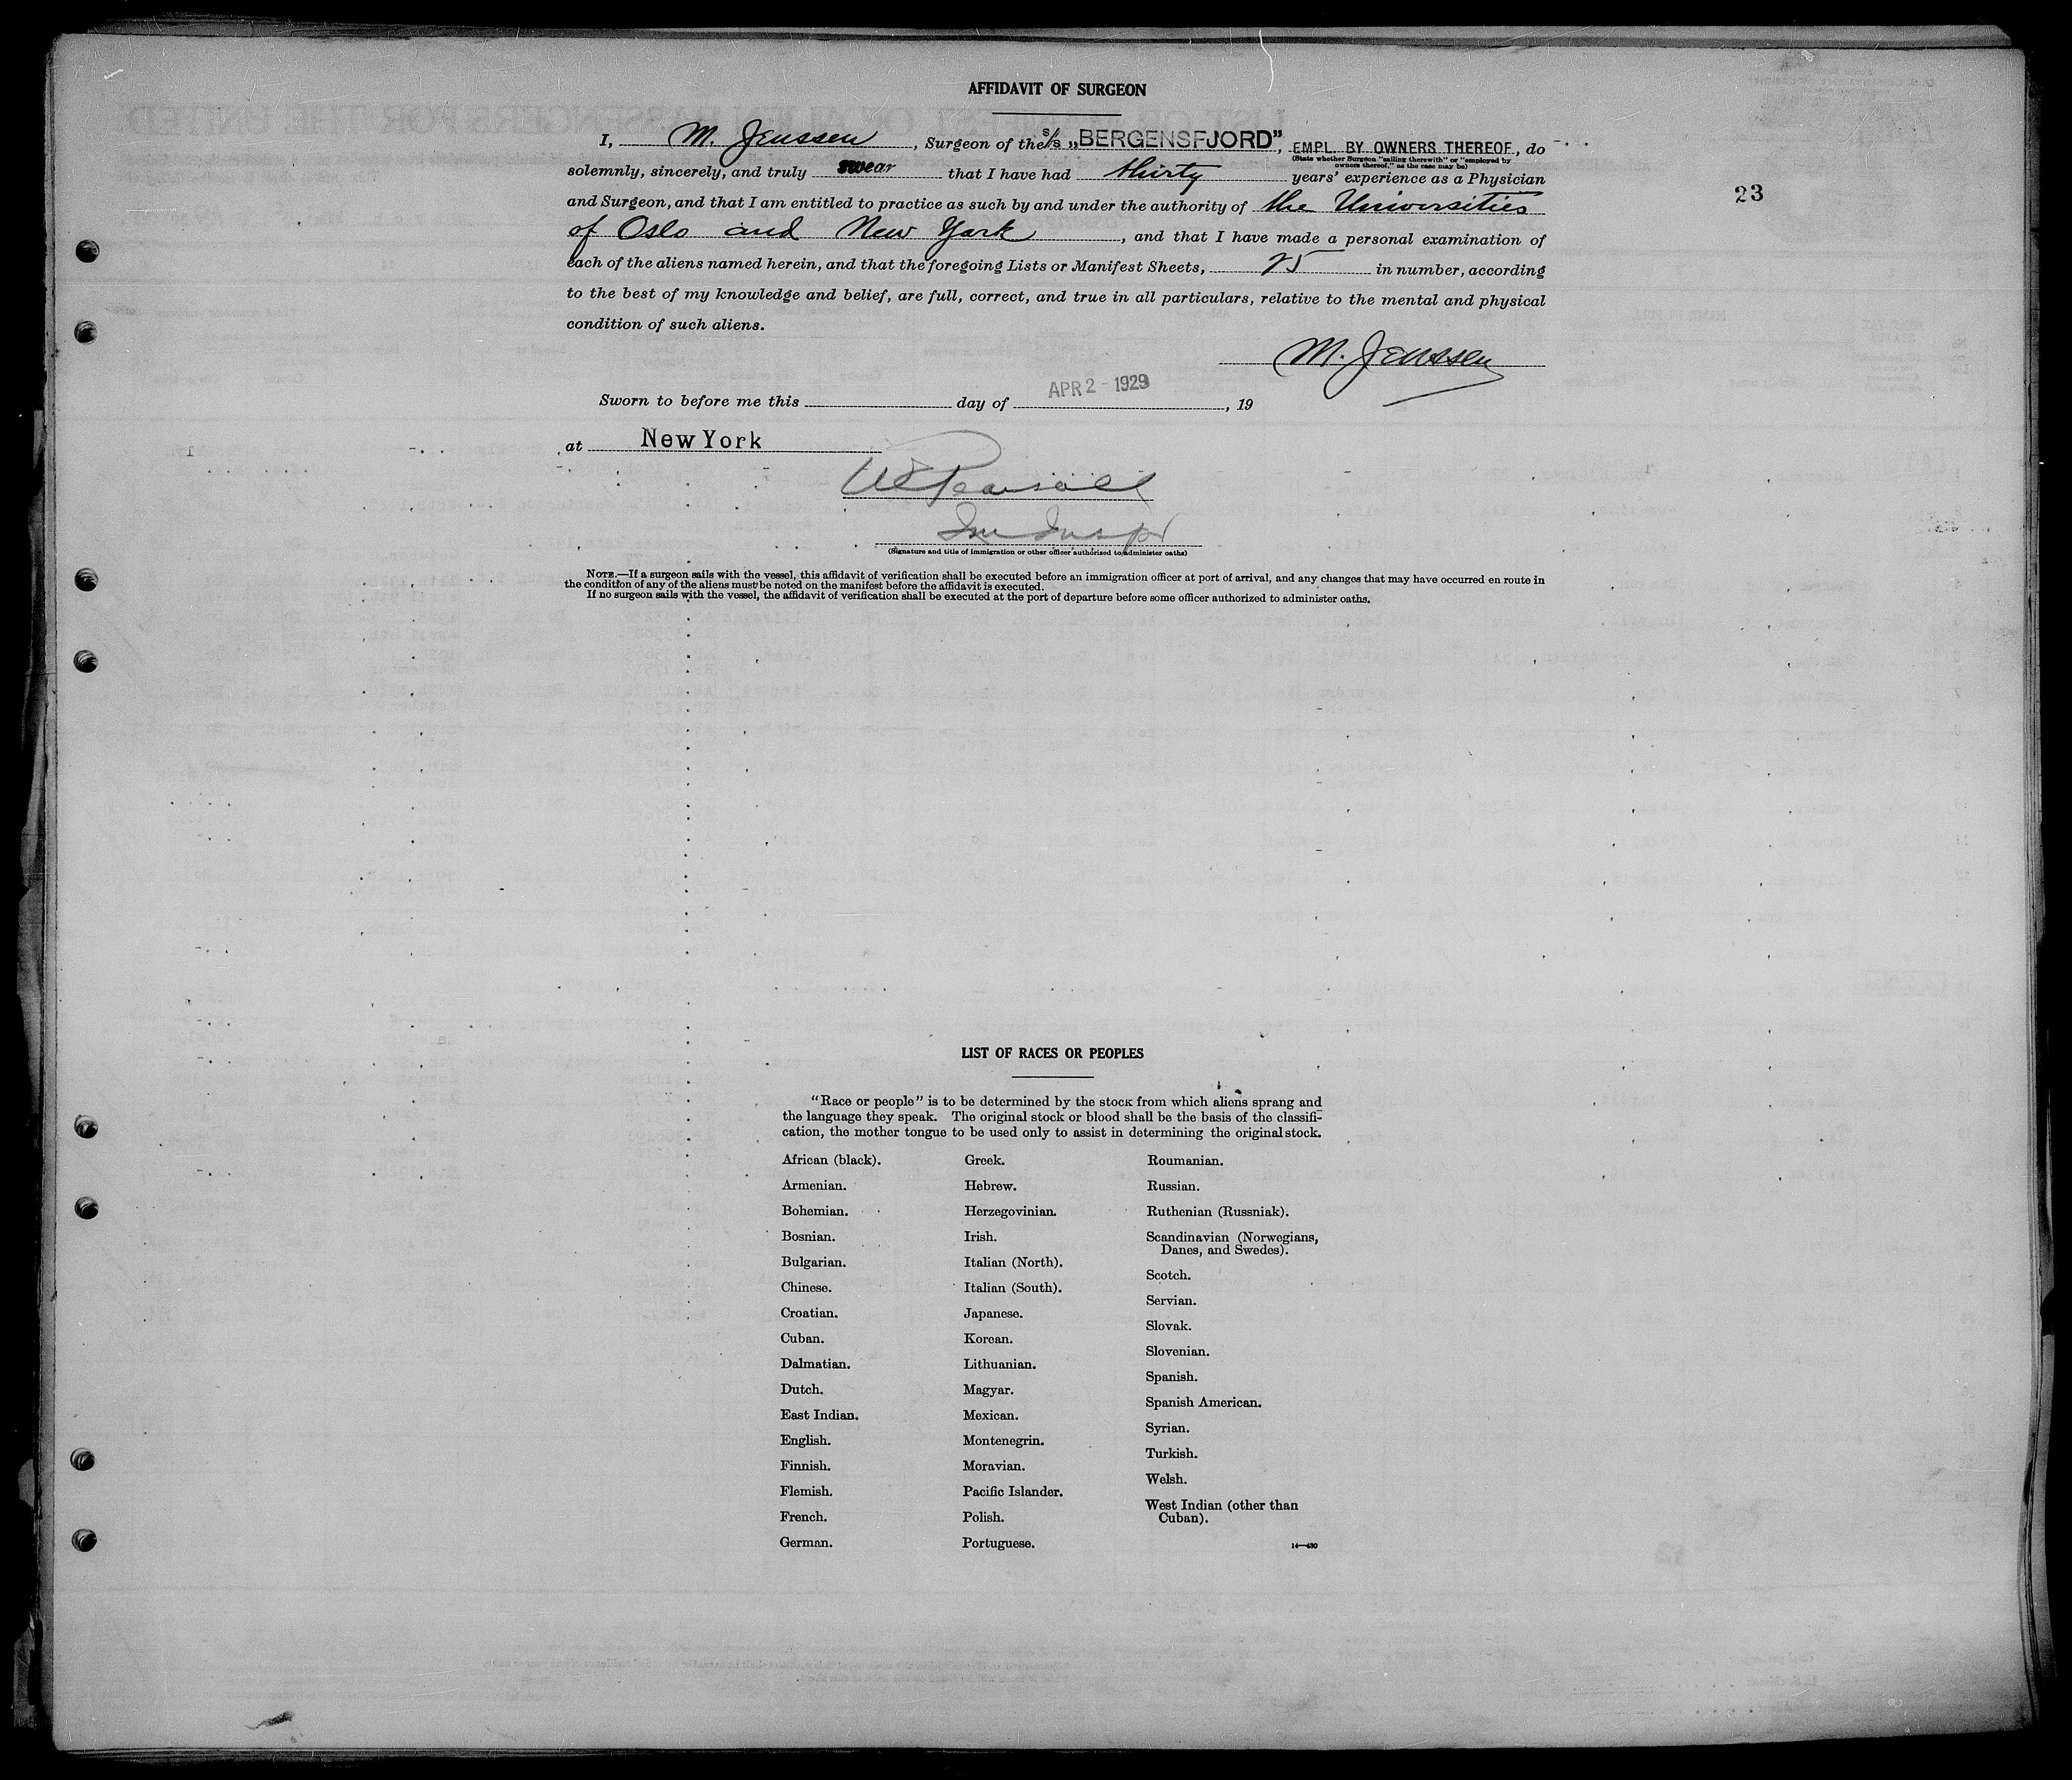 AFFIDAVIT OF SURGEON
I, M. Jenssen, Surgeon of the s/s „BERGENSFJORD”, EMPL. BY OWNERS THEREOF, do
(State whether Surgeon "sailing therewith" or "employed by
owners thereof," as the case may be)
solemnly, sincerely, and truly swear that I have had thirty years' experience as a Physician
23
and Surgeon, and that I am entitled to practice as such by and under the authority of the Universities
of Oslo and New York, and that I have made a personal examination of
each of the aliens named herein, and that the foregoing Lists or Manifest Sheets, 25 in number, according
to the best of my knowledge and belief, are full, correct, and true in all particulars, relative to the mental and physical
condition of such aliens.
M. Jenssen
Sworn to before me this day of APR 2 - 1929, 19
at New York
Pearsall
Im Inspr
(Signature and title of immigration or other officer authorized to administer oaths)
NOTE.—If a surgeon sails with the vessel, this affidavit of verification shall be executed before an immigration officer at port of arrival, and any changes that may have occurred en route in
the condition of any of the aliens must be noted on the manifest before the affidavit is executed.
If no surgeon sails with the vessel, the affidavit of verification shall be executed at the port of departure before some officer authorized to administer oaths.
LIST OF RACES OR PEOPLES
"Race or people" is to be determined by the stock from which aliens sprang and
the language they speak. The original stock or blood shall be the basis of the classifi-
cation, the mother tongue to be used only to assist in determining the original stock.
African (black).
Armenian.
Bohemian.
Bosnian.
Bulgarian.
Chinese.
Croatian.
Cuban.
Dalmatian.
Dutch.
East Indian.
English.
Finnish.
Flemish.
French.
German.
Greek.
Hebrew.
Herzegovinian.
Irish.
Italian (North).
Italian (South).
Japanese.
Korean.
Lithuanian.
Magyar.
Mexican.
Montenegrin.
Moravian.
Pacific Islander.
Polish.
Portuguese.
Roumanian.
Russian.
Ruthenian (Russniak).
Scandinavian (Norwegians,
Danes, and Swedes).
Scotch.
Servian.
Slovak.
Slovenian.
Spanish.
Spanish American.
Syrian.
Turkish.
Welsh.
West Indian (other than
Cuban).
14—430